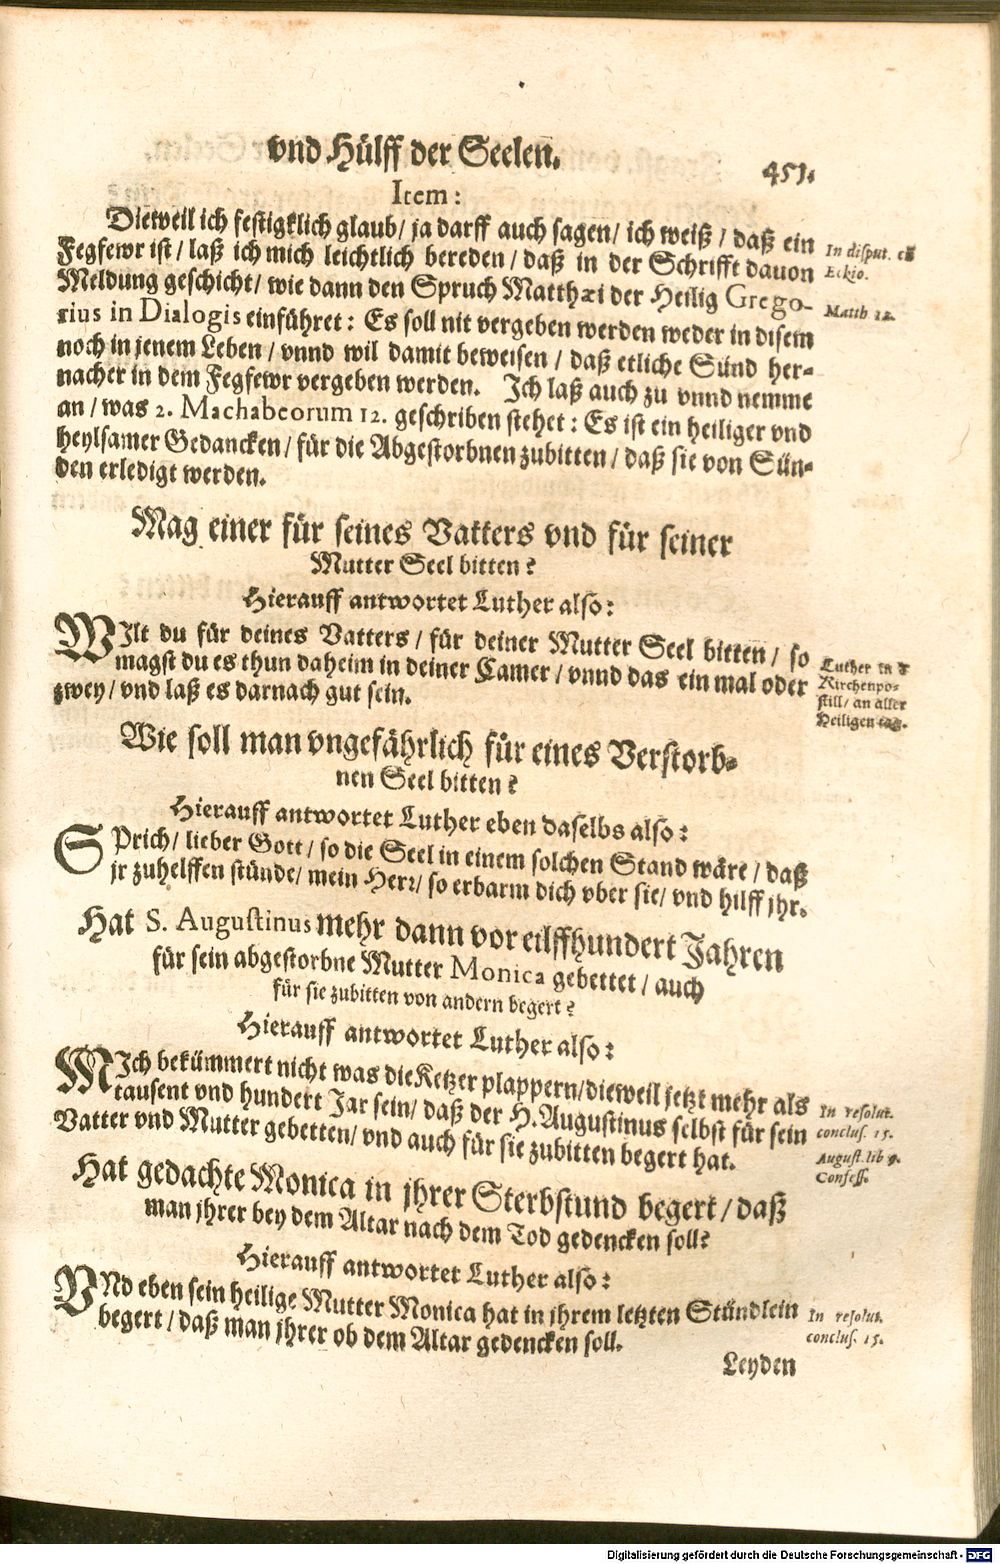 vnd Hülff der Seelen.
451.
Item:
Dieweil ich festigklich glaub/ ja darff auch sagen/ ich weiß/ daß ein
Fegfewr ist/ laß ich mich leichtlich bereden/ daß in der Schrifft dauon
Meldung geschicht/ wie dann den Spruch Matthæi der Heilig Grego-
rius in Dialogis einführet: Es soll nit vergeben werden weder in disem
noch in jenem Leben/ vnnd wil damit beweisen/ daß etliche Sünd her-
nacher in dem Fegfewr vergeben werden. Ich laß auch zu vnnd nemme
an/ was 2. Machabeorum 12. geschriben stehet: Es ist ein heiliger vnd
heylsamer Gedancken/ für die Abgestorbnen zubitten/ daß sie von Sün-
den erledigt werden.
In disput. cũ
Eckio.
Matth 12.
Mag einer für seines Vatters vnd für seiner
Mutter Seel bitten?
Hierauff antwortet Luther also:
WIlt du für deines Vatters/ für deiner Mutter Seel bitten/ so
magst du es thun daheim in deiner Camer/ vnnd das ein mal oder
zwey/ vnd laß es darnach gut sein.
Luther in d
Kirchenpo-
still/ an aller
Heiligen tag.
Wie soll man vngefährlich für eines Verstorb-
nen Seel bitten?
Hierauff antwortet Luther eben daselbs also:
SPrich/ lieber Gott/ so die Seel in einem solchen Stand wäre/ daß
jr zuhelffen stünde/ mein Herr/ so erbarm dich vber sie/ vnd hilff jhr.
Hat S. Augustinus mehr dann vor eilffhundert Jahren
für sein abgestorbne Mutter Monica gebettet/ auch
für sie zubitten von andern begert?
Hierauff antwortet Luther also:
MIch bekümmert nicht was die Ketzer plappern/ dieweil jetzt mehr als
tausent vnd hundert Jar sein/ daß der H. Augustinus selbst für sein
Vatter vnd Mutter gebetten/ vnd auch für sie zubitten begert hat.
In resolut.
conclus. 15.
August. lib 9.
Confess.
Hat gedachte Monica in jhrer Sterbstund begert/ daß
man jhrer bey dem Altar nach dem Tod gedencken soll?
Hierauff antwortet Luther also:
VNd eben sein heilige Mutter Monica hat in jhrem letzten Stündlein
begert/ daß man jhrer ob dem Altar gedencken soll.
In resolut.
conclus. 15.
Leyden
Digitalisierung gefördert durch die Deutsche Forschungsgemeinschaft - DFG